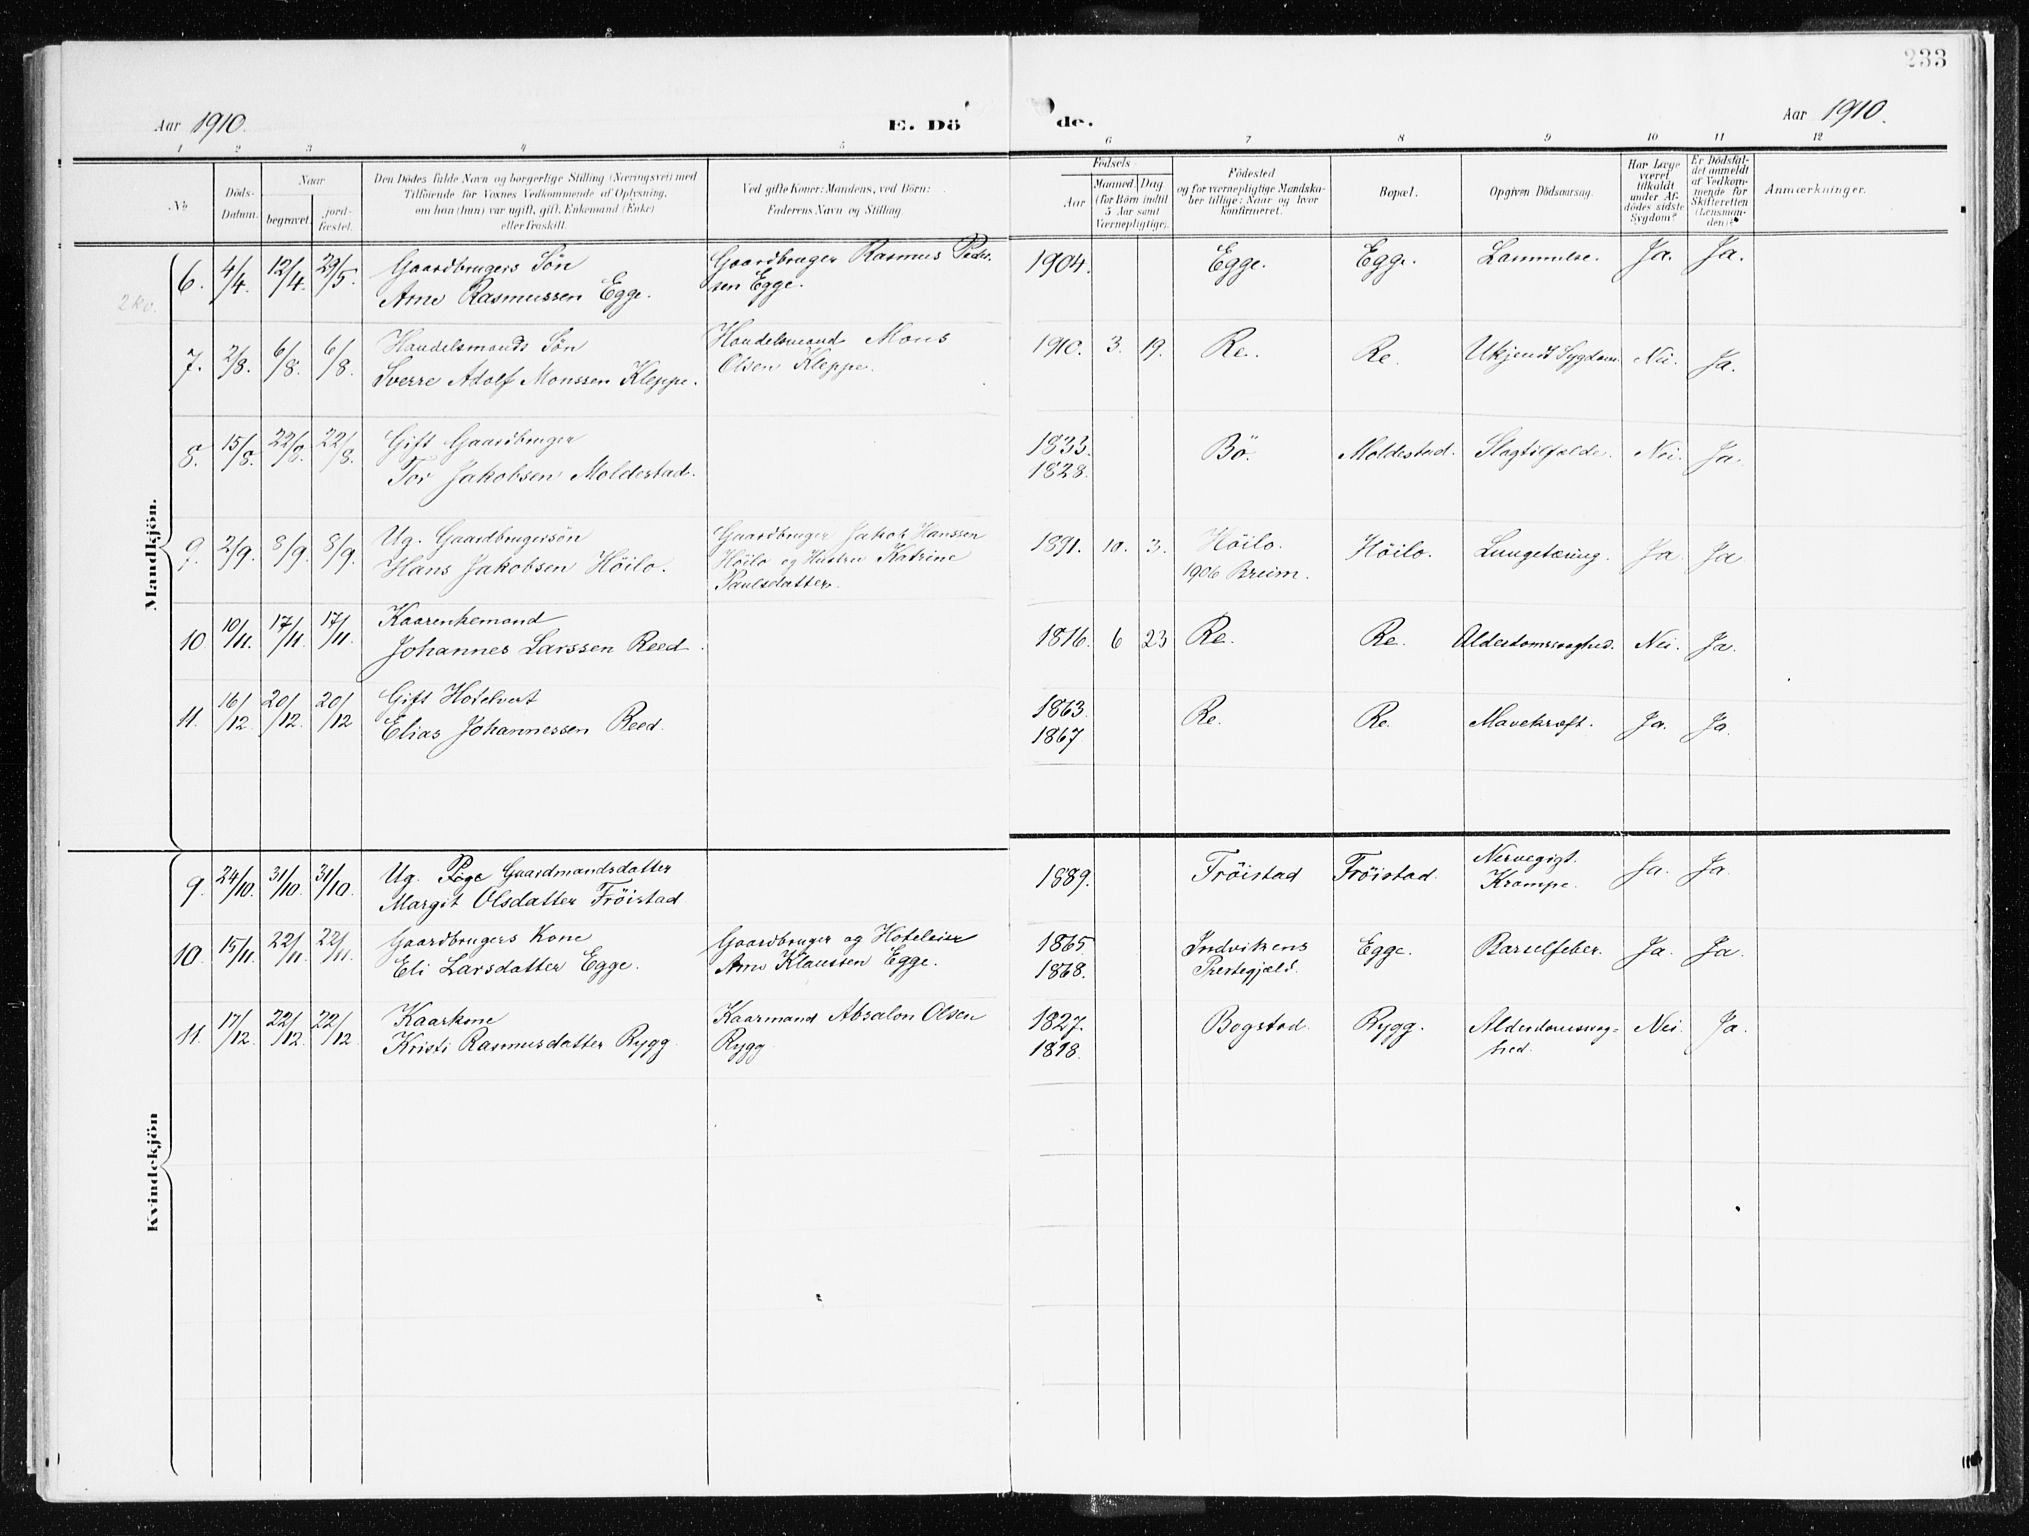 233
Aar 1910.
E. Döde.
Aar 1910.
1 2 3 4 5 6 7 8 9 10 11 12
No
Döds-Datum.
Naar
begravet.
jord-fæstet.
Den Dödes fulde Navn og borgerlige Stilling (Næringsvei) med
Tilföiende for Voxnes Vedkommende af Oplysning,
om han (hun) var ugift, gift, Enkemand (Enke)
eller fraskilt.
Ved gifte Koner: Mandens, ved Börn:
Faderens Navn og Stilling
Födsels
Aar
Maaned Dag
(for Börn indtil
5 Aar samt
Værnepligtige).
Födested
og for værnepligtige Mandska-
ber tillige: Naar og hvor
konfirmeret.
Bopæl.
Opgiven Dödsaarsag.
Har Læge
været
tilkaldt
under Af-
dödes sidste
Sygdom?
Er Dödsfal-
det anmeldt
af Vedkom-
mende for
Skifteretten
(Lensman-
den)?
Anmærkninger.
Mandkjön.
2 kv.
6. 4/4. 12/4. 29/5. Gaardbrugers Sön Gaardbruger Rasmus Peder- 1904. Egge. Egge. Lammelse. Ja. Ja.
Arne Rasmussen Egge. sen Egge.
7. 2/8. 6/8. 6/8. Handelsmands Sön Handelsmand Mons 1910. 3. 19. Re. Re. Ukjendt Sygdom. Nei. Ja.
Sverre Adolf Monssen Kleppe. Olsen Kleppe.
8. 15/8. 22/8. 22/8. Gift Gaardbruger 1833. Bö. Moldestad. Slagtilfælde. Nei. Ja.
Tor Jakobsen Moldestad. 1828.
9. 2/9. 8/9. 8/9. Ug. Gaardbrugersön Gaardbruger Jakob Hanssen 1891. 10. 3. Höilo. Höilo. Lungetæring. Ja. Ja
Hans Jakobsen Höilo. Höilo og Hustru Katrine 1906 Breim.
Paulsdatter.
10 10/11. 17/11. 17/11. Kaarenkemand 1816. 6 23 Re. Re. Alderdomssvaghed. Nei. Ja.
Johannes Larssen Reed.
11. 16/12. 20/12. 20/12 Gift Hotelvert 1863. Re. Re. Mavekræft. Ja. Ja.
Elias Johannessen Reed. 1867
Kvindekjön
9. 24/10. 31/10. 31/10. Ug. Pige Gaardmandsdatter 1889. Fröistad Fröistad. Nervegigt. Ja. Ja.
Margit Olsdatter Fröistad Krampe.
10. 15/11. 22/11. 22/11. Gaardbrugers Kone Gaardbruger og Hoteleier 1865. Indvikens Egge. Barselfeber. Ja. Ja.
Eli Larsdatter Egge. Arne Klaussen Egge. 1868. Prestegjæld.
11. 17/12. 22/12. 22/12. Kaarkone Kaarmand Absalon Olsen 1827. Bogstad. Rygg. Alderdomssvag- Nei. Ja.
Kristi Rasmusdatter Rygg. Rygg 1818. hed.